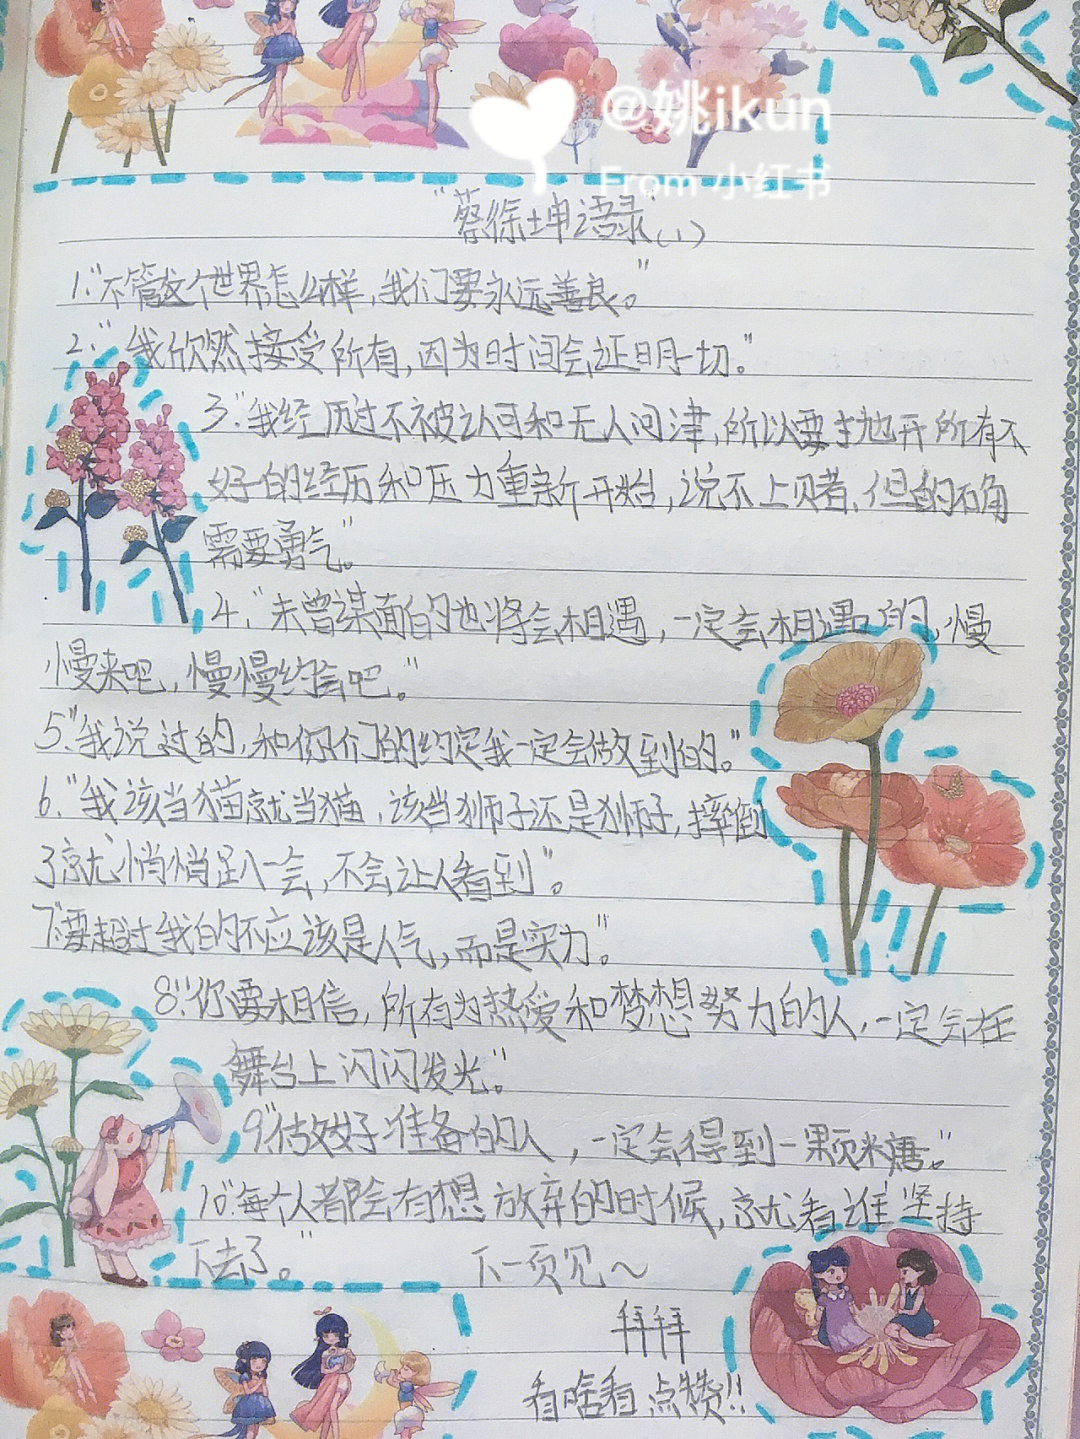 @姚ikun
From 小红书
"蔡徐坤语录"(1)
1."不管这个世界怎么样,我们要永远善良。"
2."我欣然接受所有,因为时间会证明一切。"
3."我经历过不被认可和无人问津,所以要抛开所有不
好的经历和压力重新开始,说不上赌,但的确
需要勇气。"
4."未曾谋面的也将会相遇,一定会相遇的,慢
慢来吧,慢慢约会吧。"
5."我说过的,和你们的约定我一定会做到的。"
6."我该当猫就当猫,该当狮子还是狮子,摔倒
了就悄悄趴一会,不会让人看到"。
7."要超过我的不应该是人气,而是实力。"
8."你要相信,所有为热爱和梦想努力的人,一定会在
舞台上闪闪发光。"
9."做好准备的人,一定会得到一颗糖。"
10."每个人都会有想放弃的时候,就看谁坚持
下去了。"
下一页见~
拜拜
看啥看 点赞!!